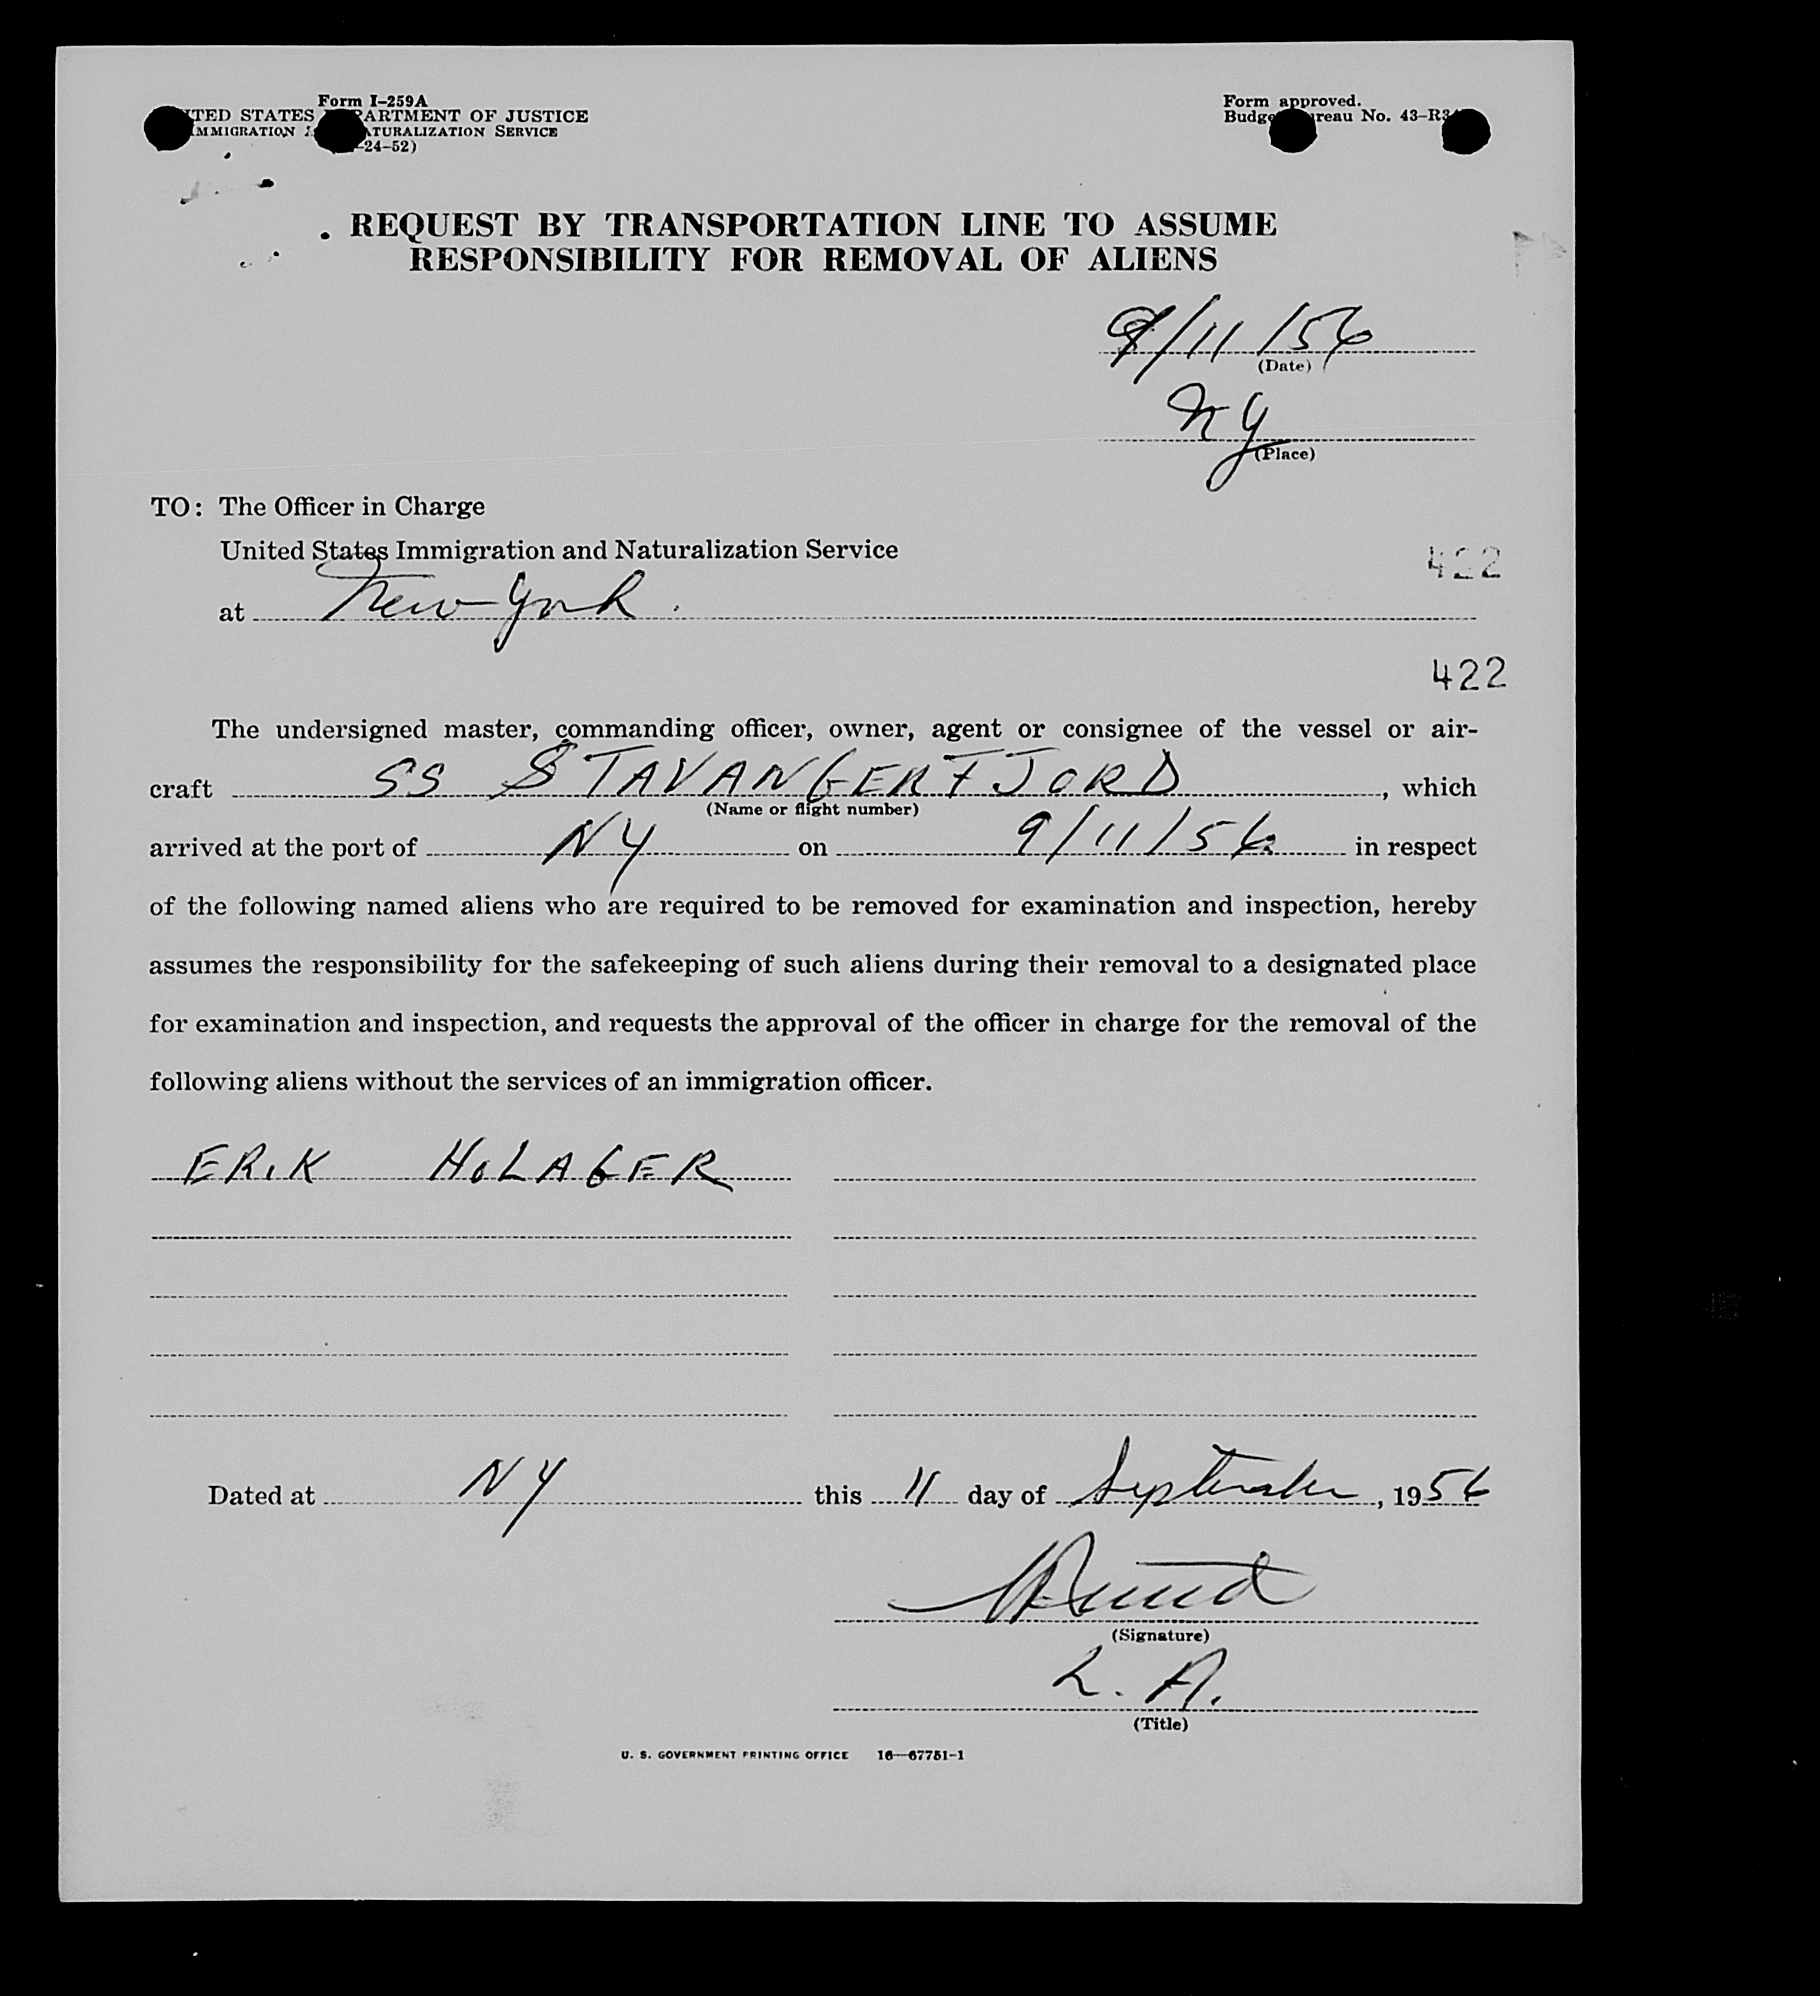 Form I-259A
TED STATES ARTMENT OF JUSTICE
MMIGRATION ATURALIZATION SERVICE
-24-52)
Form approved.
Budge reau No. 43-R3
REQUEST BY TRANSPORTATION LINE TO ASSUME
RESPONSIBILITY FOR REMOVAL OF ALIENS
9/11/56
(Date)
NY
(Place)
TO: The Officer in Charge
United States Immigration and Naturalization Service
422
at New York.
422
The undersigned master, commanding officer, owner, agent or consignee of the vessel or air-
craft SS STAVANGERFJORD, which
(Name or flight number)
arrived at the port of NY on 9/11/56 in respect
of the following named aliens who are required to be removed for examination and inspection, hereby
assumes the responsibility for the safekeeping of such aliens during their removal to a designated place
for examination and inspection, and requests the approval of the officer in charge for the removal of the
following aliens without the services of an immigration officer.
ERIK HOLAGER
Dated at NY this 11 day of September, 1956
(Signature)
L. A.
(Title)
U. S. GOVERNMENT PRINTING OFFICE 16—67751-1